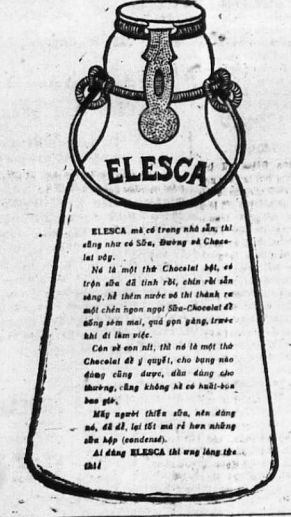 ELESCA
ELESCA mà có trong nhà sẵn, thì
cũng như có Sữa, Đường và Choco-
lat vậy.
Nó là một thứ Chocolat bột, có
trộn sữa đã tinh rồi, chín rồi sẵn
sàng, hễ thêm nước vô thì thành ra
một chén ngon ngọt Sữa-Chocolat để
uống sớm mai, quá gọn gàng, trước
khi đi làm việc.
Còn về con nít, thì nó là một thứ
Chocolat để y quyết, cho bụng nào
dùng cũng được, dầu dùng cho
thường, cũng không hề có huỡt-bợn
bao giờ.
Mấy người thiếu sữa, nên dùng
nó, đã dễ, lại tốt mà rẻ hơn những
sữa hộp (condensé).
Ai dùng ELESCA thì ưng lòng the
thì!